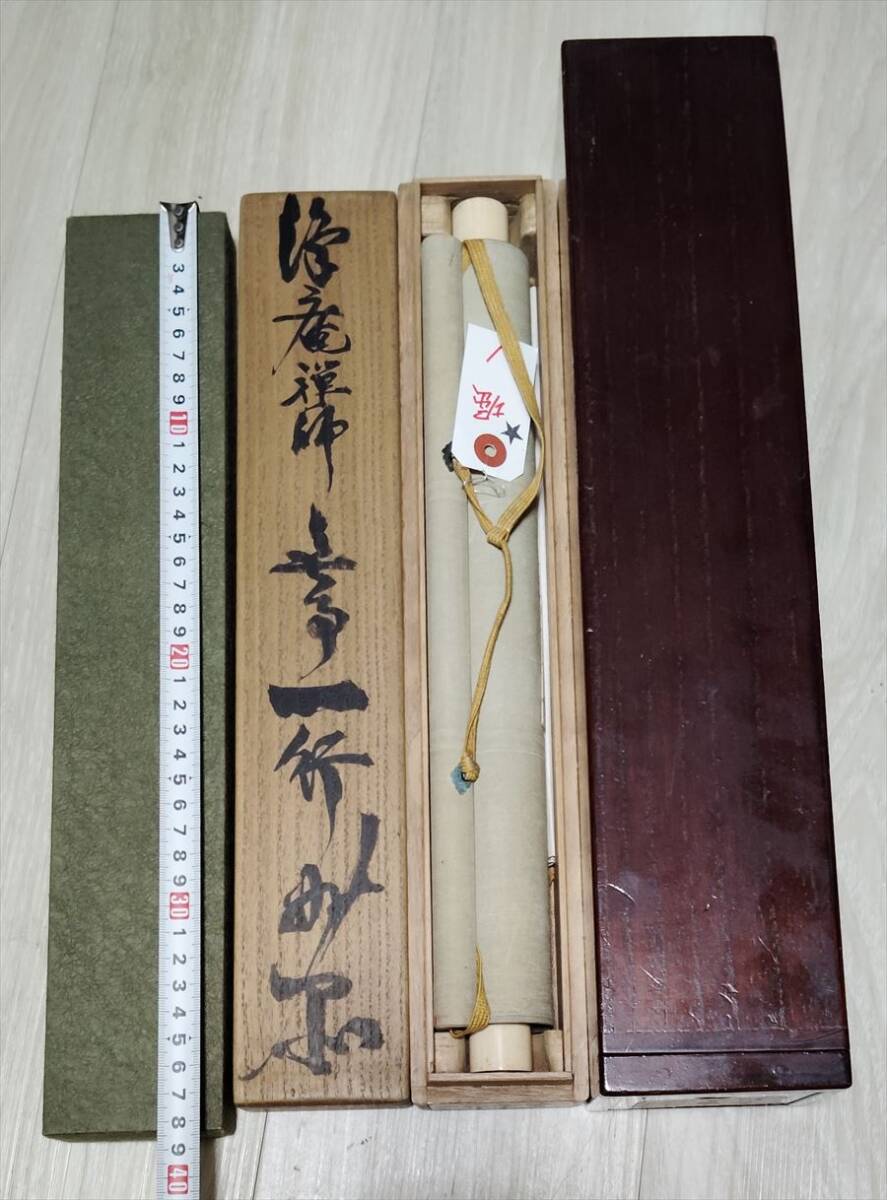 澤庵禅師 無事 一行 妙
堀
3 4 5 6 7 8 9 10 1 2 3 4 5 6 7 8 9 20 1 2 3 4 5 6 7 8 9 30 1 2 3 4 5 6 7 8 9 40